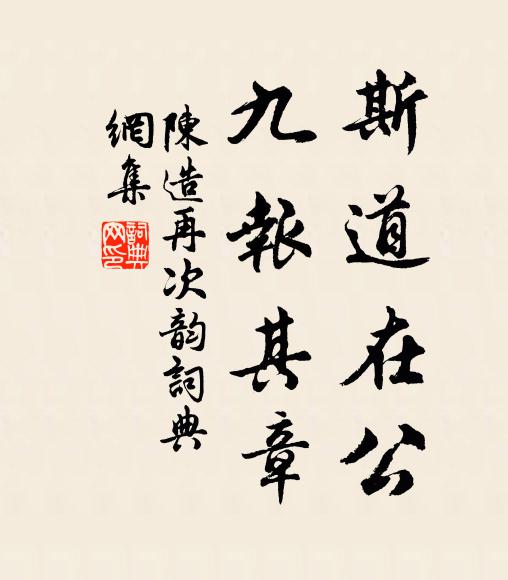 斯道在公
九報其章
陳造再次韵詞典
網集
詞典網印